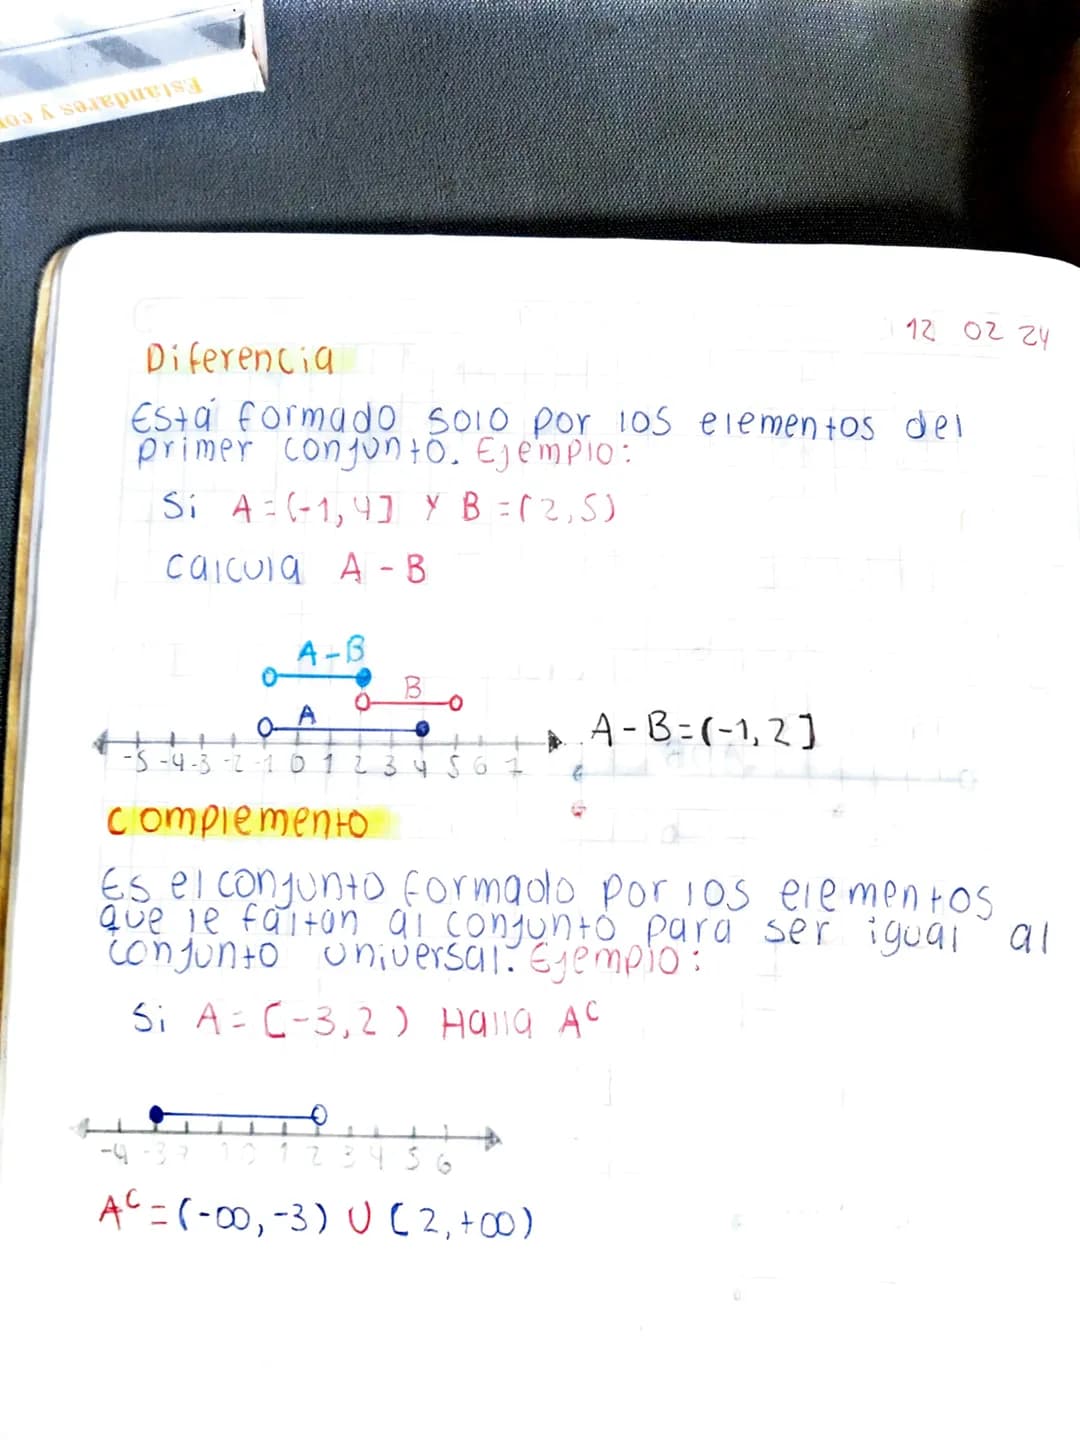 Estándares y co
12 02 24
Diferencia
Está formado solo por los elementos del
primer conjunto. Ejemplo:
Si A = (-1,4] Y B = (2,5)
calcula A - B
A-B
B
A
A-B=(-1,2]
-5 -4 -3 -2 -1 0 1 2 3 4 5 6 7
complemento
Es el conjunto formado por los elementos
que le faltan al conjunto para ser igual al
conjunto universal. Ejemplo:
Si A = [-3,2) Halla Aᶜ
-4 -3 2 1 0 1 2 3 4 5 6
Aᶜ = (-∞,-3) U [2,+∞)